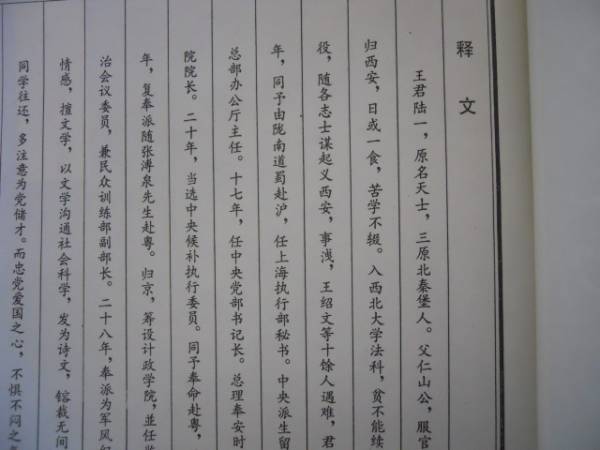 释文
王君陆一，原名天士，三原北秦堡人。父仁山公，服官
归西安，日或一食，苦学不辍。入西北大学法科，贫不能续
役，随各志士谋起义西安，事浅，王绍文等十馀人遇难，君
年，同予由陇南道蜀赴沪，任上海执行部秘书。中央派生留
总部办公厅主任。十七年，任中央党部书记长。总理奉安时
院院长。二十年，当选中央候补执行委员。同予奉命赴粤，
年，复奉派随张溥泉先生赴粤。归京，筹设计政学院，并任监
治会议委员，兼民众训练部副部长。二十八年，奉派为军风纪
情感，擅文学，以文学沟通社会科学，发为诗文，镕裁无间
同学往还，多注意为党储才。而忠党爱国之心，不惧不闷之